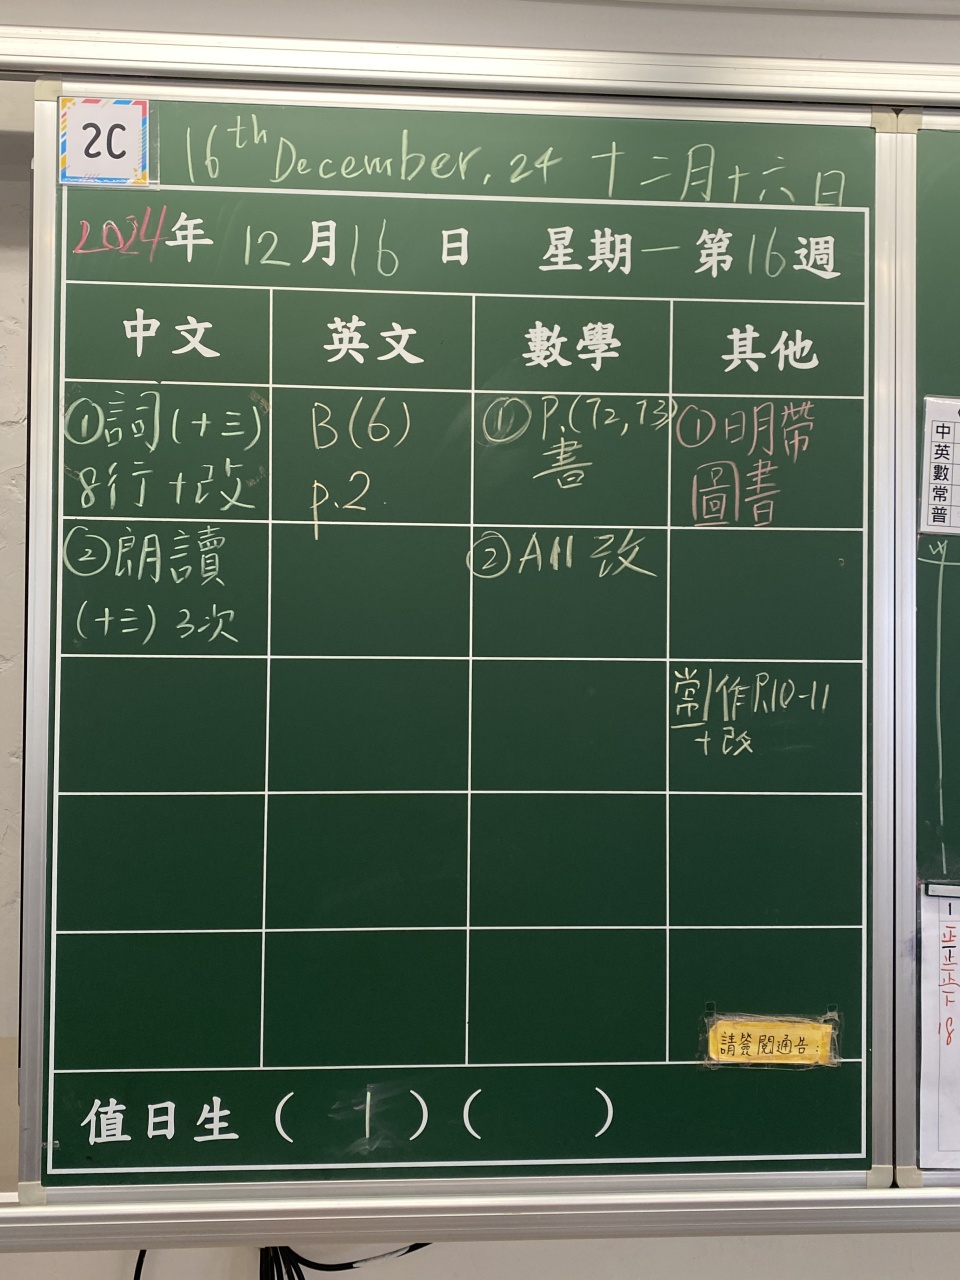 2C
16th December, 24 十二月十六日
2024年 12月16日 星期一 第16週
中文 英文 數學 其他
①詞(十三)
8行+改
B(6)
p.2
①P.(72,73)
書
①明帶
圖書
②朗讀
(十三) 3次
②All 改
常/作P.10-11
+改
請簽閱通告:
值日生( 1 )( )
中
英
數
常
普
1
正
正
正
下
18